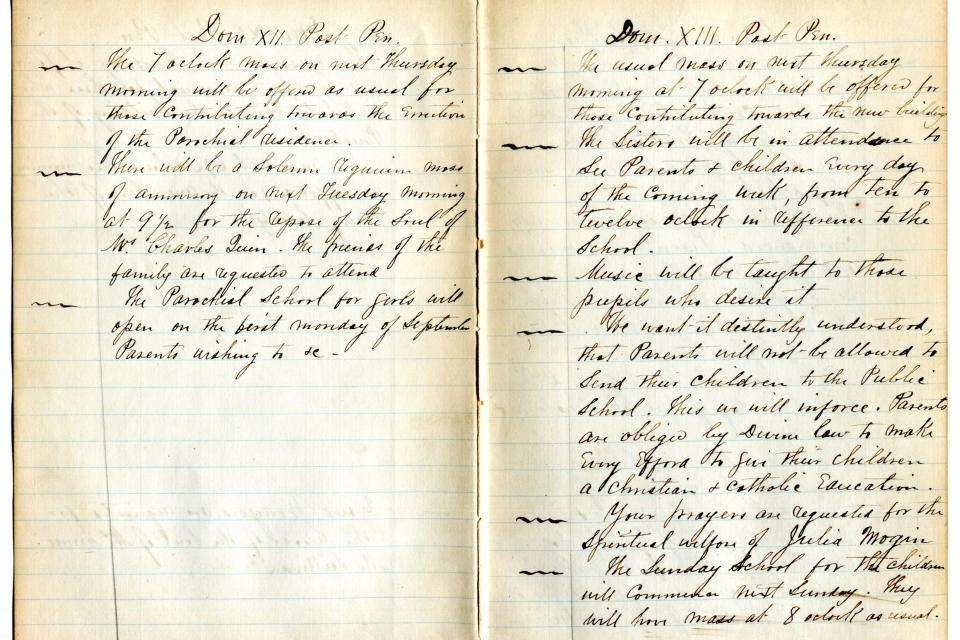 Dom XII. Post Pen.
The 7 oclock mass on next Thursday
morning will be offered as usual for
those Contributing towards the Erection
of the Parochial residence.
There will be a Solemn requiem mass
of anniversary on next Tuesday morning
at 9 1/2 for the repose of the Soul of
Mrs Charles Quin. The friends of the
family are requested to attend
The Parochial School for girls will
open on the first monday of September
Parents wishing to &c -
Dom. XIII. Post Pen.
The usual mass on next Thursday
morning at 7 oclock will be offered for
those Contributing towards the new building
The Sisters will be in attendance to
See Parents & children Every day
of the Coming week, from ten to
twelve oclock in refference to the
School.
Music will be taught to those
pupils who desire it
We want it distintly understood,
that Parents will not be allowed to
Send their children to the Public
School. This we will inforce. Parents
are obliged by Divine law to make
Every Efford to give their children
a Christian & Catholic Education.
Your prayers are requested for the
Spiritual welfare of Julia Mogin
The Sunday School for the children
will Commence next Sunday. They
will have mass at 8 oclock as usual.